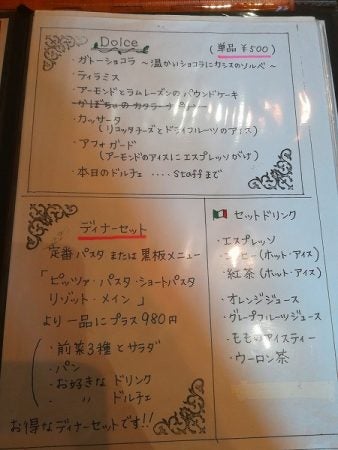 Dolce
(単品 ¥500)
・ガトーショコラ ～温かいショコラにカシスのソルベ～
・ティラミス
・アーモンドとラムレーズンのパウンドケーキ
・かぼちゃのカタラーナ
・カッサータ
(リコッタチーズとドライフルーツのアイス)
・アフォガード
(アーモンドのアイスにエスプレッソがけ)
・本日のドルチェ ‥‥ staffまで
ディナーセット
定番パスタ または 黒板メニュー
「ピッツァ・パスタ・ショートパスタ
リゾット・メイン」
より一品にプラス980円
・前菜3種とサラダ
・パン
・お好きな ドリンク
・ 〃 ドルチェ
お得なディナーセットです!!
セットドリンク
・エスプレッソ
・コーヒー(ホット・アイス)
・紅茶(ホット・アイス)
・オレンジジュース
・グレープフルーツジュース
・もものアイスティー
・ウーロン茶